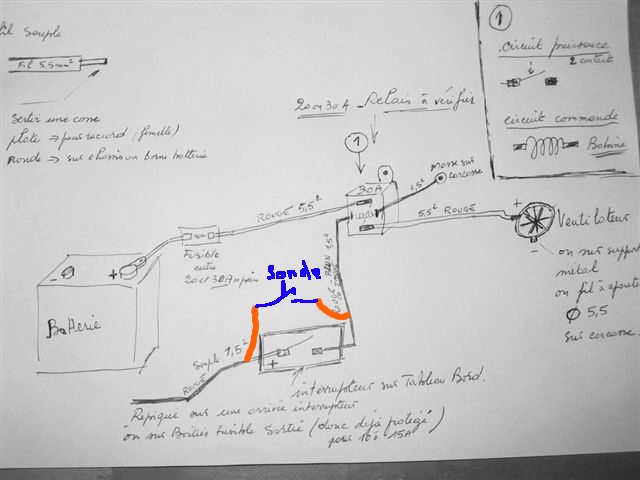 fil souple
Fil 5.5mm²
Sertir une cosse
plate → pour raccord (femelle)
Ronde → sur chassis ou borne batterie
20 ou 30A - Relais à vérifier
1
circuit puissance
2 contacts
circuit commande
Bobine
1
30A
Masse sur
carcasse
1,5²
ROUGE 5,5²
5,5² ROUGE
+
Ventilateur
-
ou sur support
métal
ou fil à ajouter
Ø 5,5
sur carcasse.
Fusible
entre
20 et 30A
- +
Batterie
Sonde
1,5²
souple 1,5²
ROUGE
+
interrupteur sur Tableau Bord.
Repiqué sur une arrivée interrupteur
ou sur Boitier fusible Sortie (donc déjà protégé)
par 10 à 15A